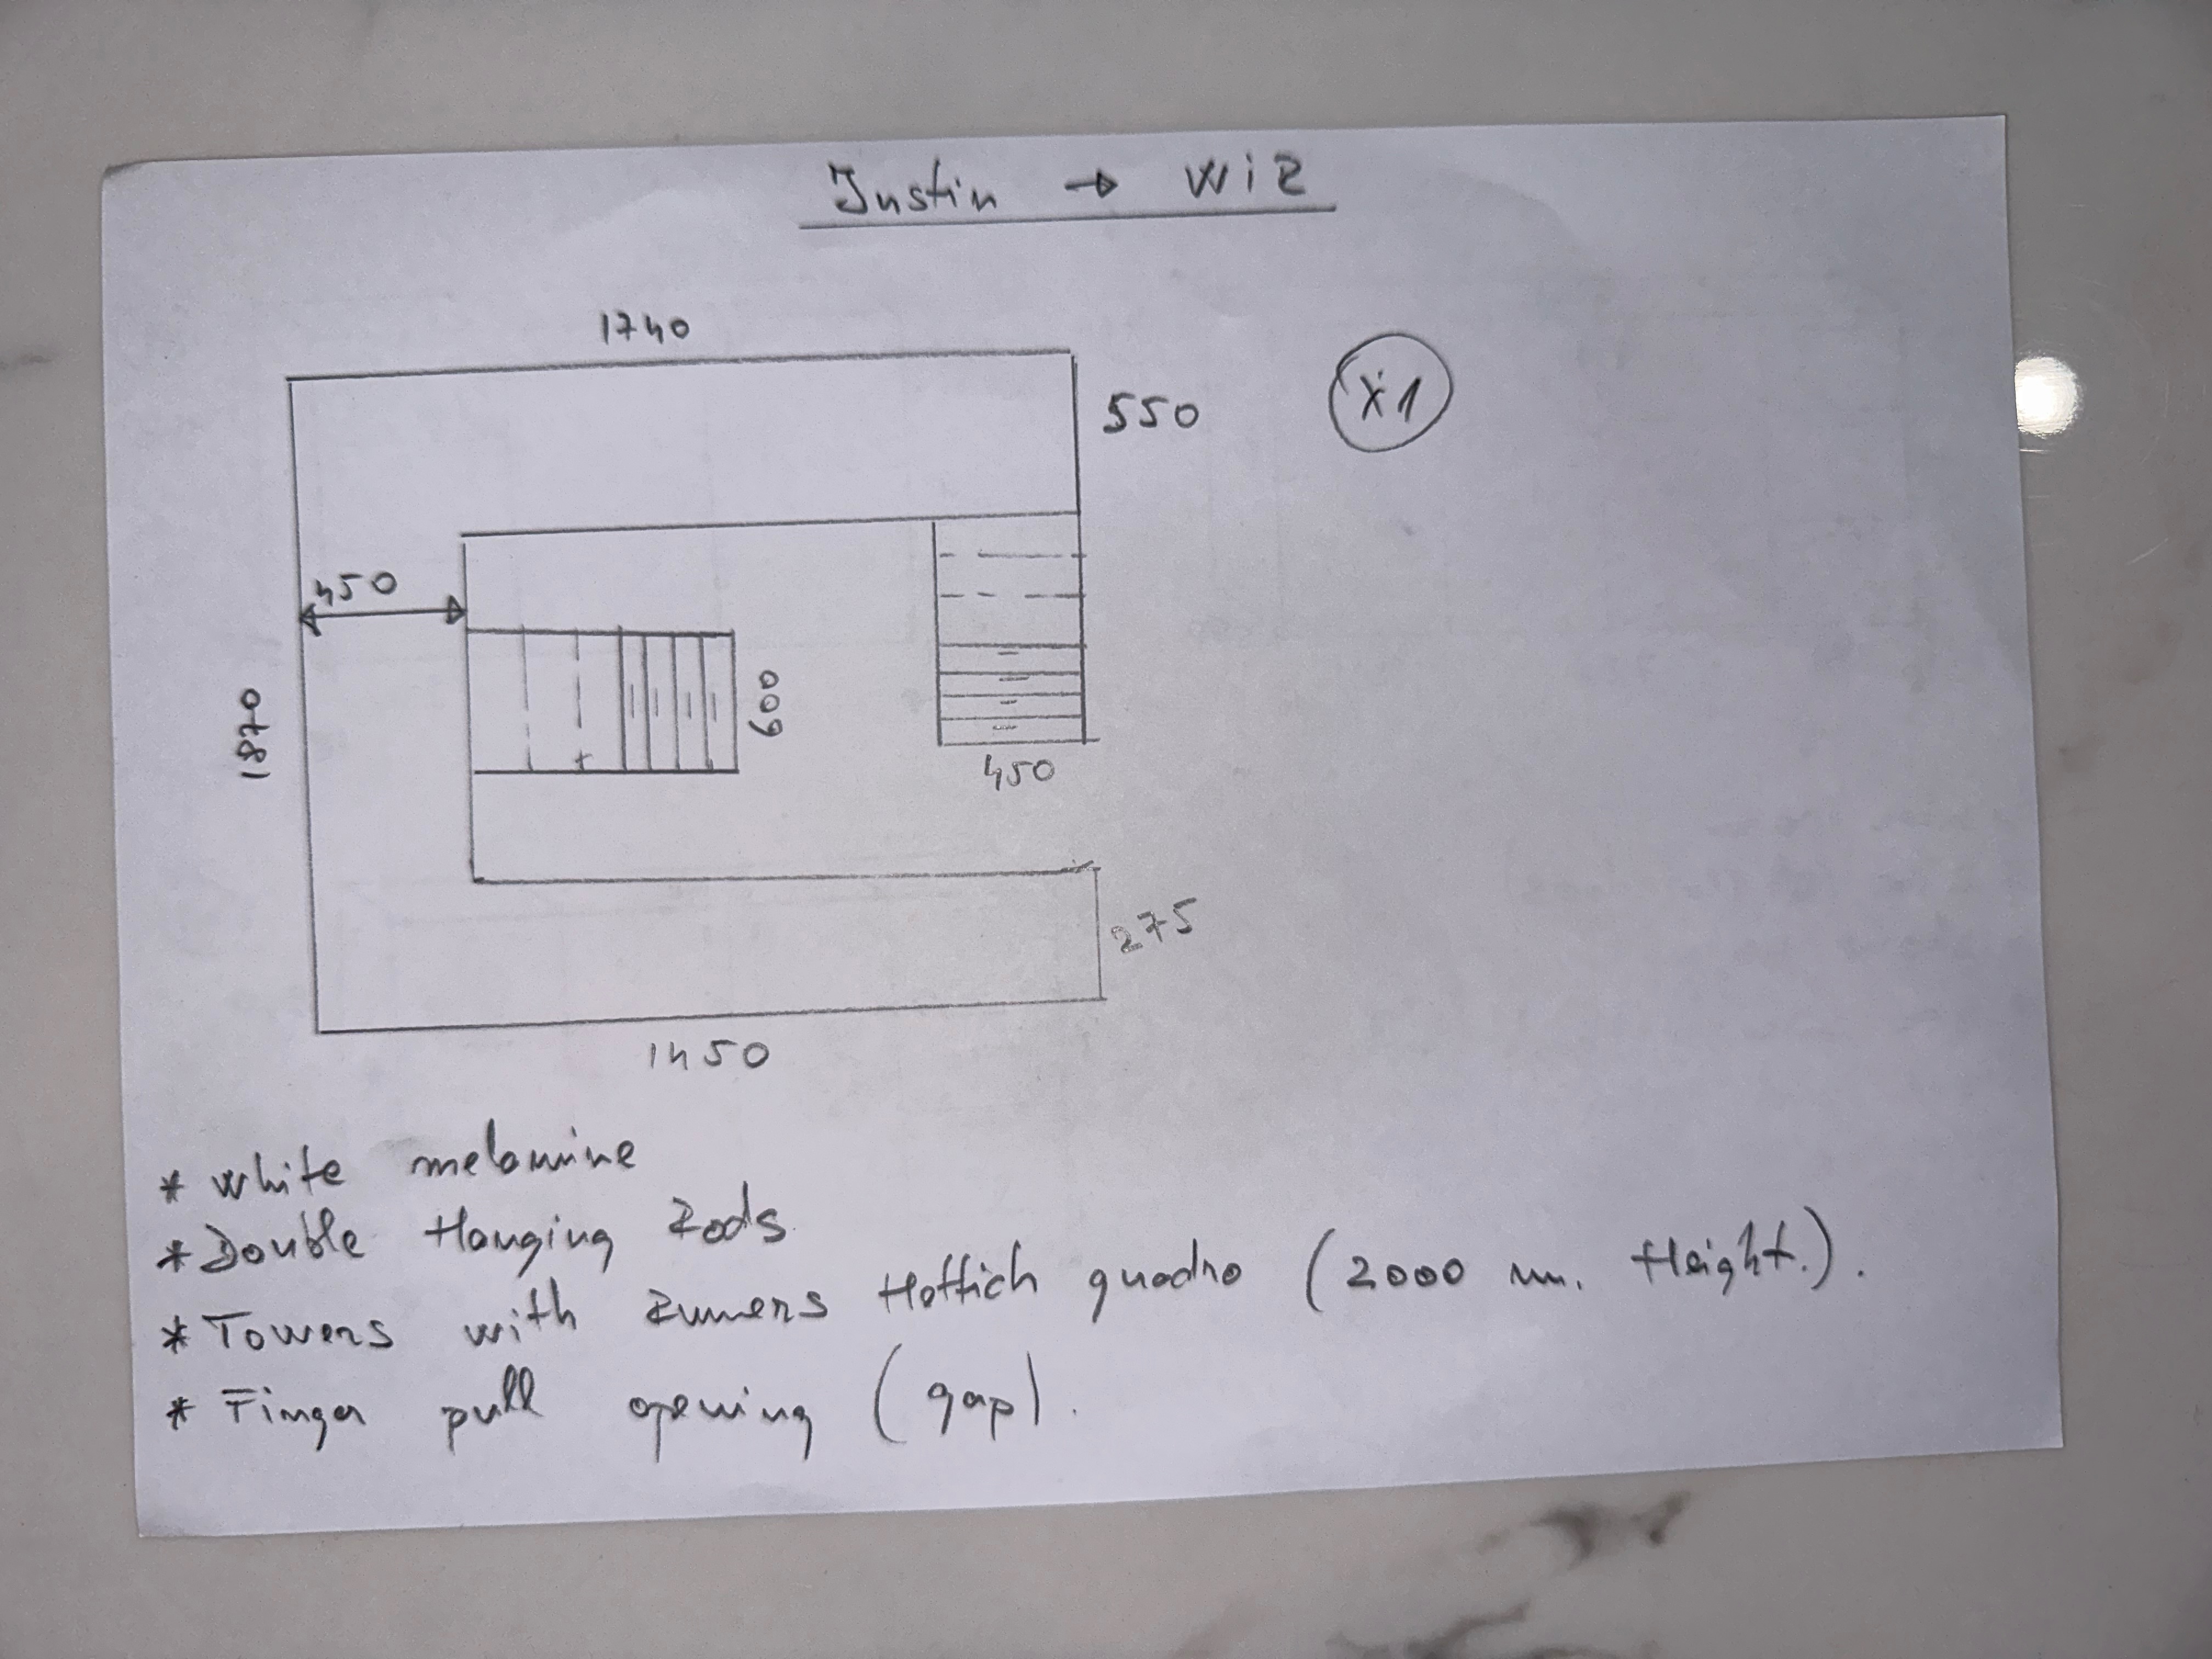 Justin → WiR
1740
550
X1
450
1870
600
450
275
1450
* White melamine
* Double Hanging Rods
* Towers with Runners Hettich quadro (2000 mm. Height.).
* Finger pull opening (gap).